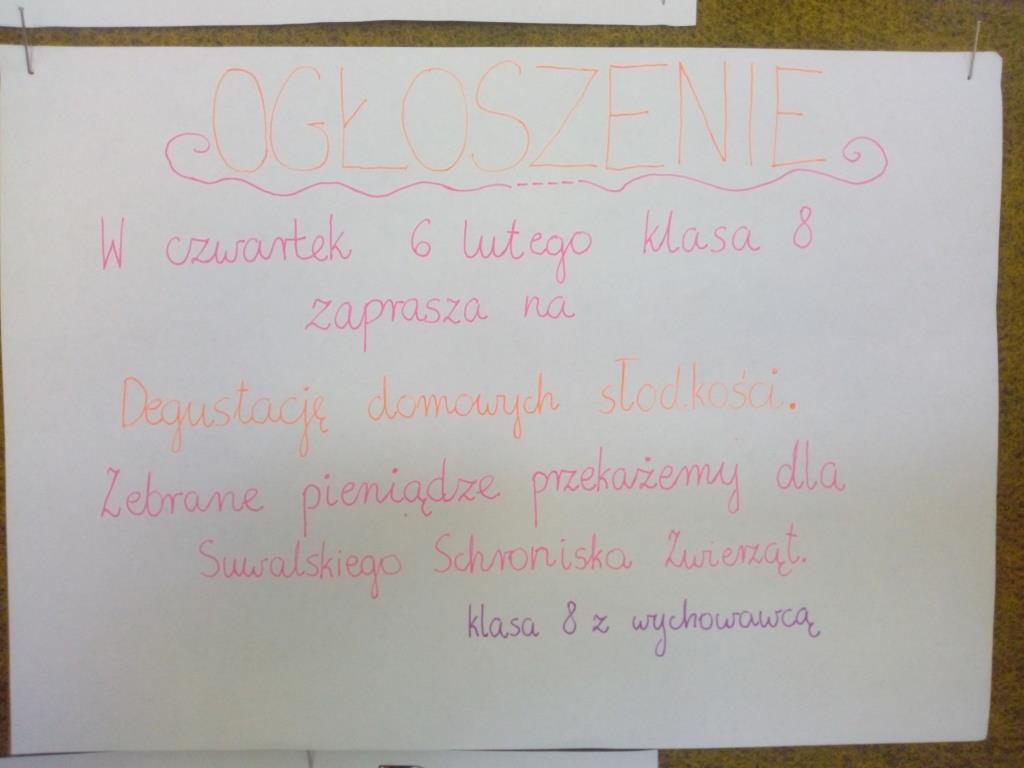 OGŁOSZENIE
W czwartek 6 lutego klasa 8
zaprasza na
Degustację domowych słodkości.
Zebrane pieniądze przekażemy dla
Suwalskiego Schroniska Zwierząt.
klasa 8 z wychowawcą